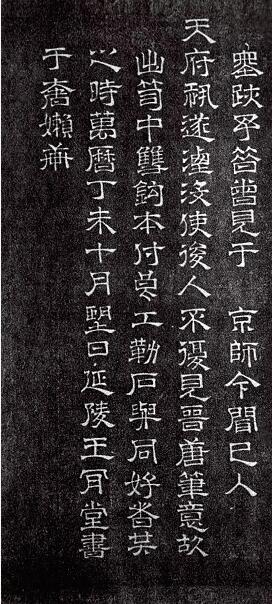 墨跡予昔曾見于 京師今聞已入
天府恐遂湮沒使後人不復見晉唐筆意故
出笥中雙鈎本付良工勒石與同好者共
之時萬曆丁未十月望日延陵王肯堂書
于嬾齋